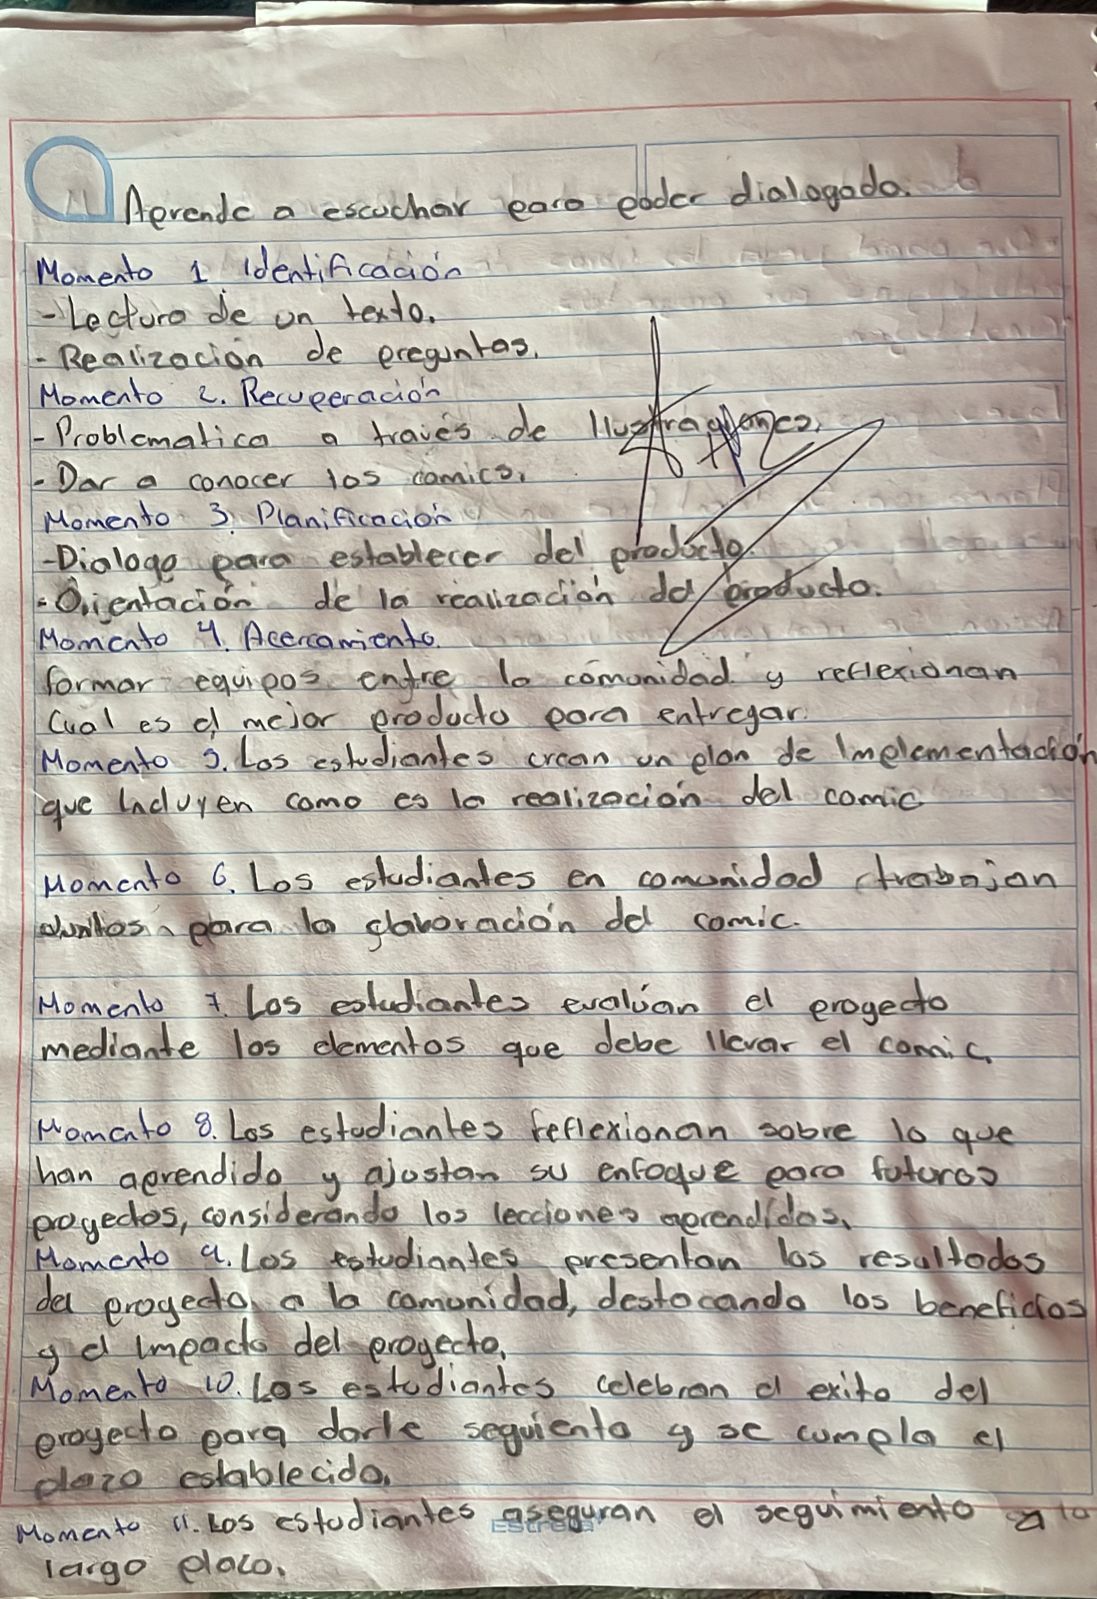 Aprende a escuchar para poder dialogado.
Momento 1. Identificación
- Lectura de un texto.
- Realización de preguntas.
Momento 2. Recuperación
- Problematica a través de Ilustraciones.
- Dar a conocer los comics.
Momento 3. Planificación
- Dialogo para establecer del producto.
- Orientación de la realización del producto.
Momento 4. Acercamiento.
formar equipos entre la comunidad y reflexionan
Cual es el mejor producto para entregar.
Momento 5. Los estudiantes crean un plan de Implementación
que Incluyen como es la realización del comic
Momento 6. Los estudiantes en comunidad trabajan
Juntos para la elaboración del comic.
Momento 7. Los estudiantes evalúan el proyecto
mediante los elementos que debe llevar el comic.
Momento 8. Los estudiantes reflexionan sobre lo que
han aprendido y ajustan su enfoque para futuros
proyectos, considerando los lecciones aprendidas.
Momento 9. Los estudiantes presentan los resultados
del proyecto a la comunidad, destacando los beneficios
y el Impacto del proyecto.
Momento 10. Los estudiantes celebran el exito del
proyecto para darle seguiento y se cumpla el
plazo establecido.
Momento 11. Los estudiantes aseguran el seguimiento a lo
Estrella
largo plazo.